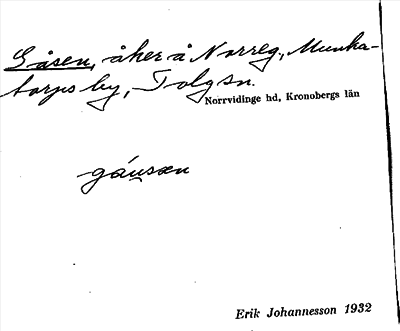 Gåsen, åker å Norreg., Munka-
torps by, Tolg sn.
Norrvidinge hd, Kronobergs län
gáusen
Erik Johannesson 1932